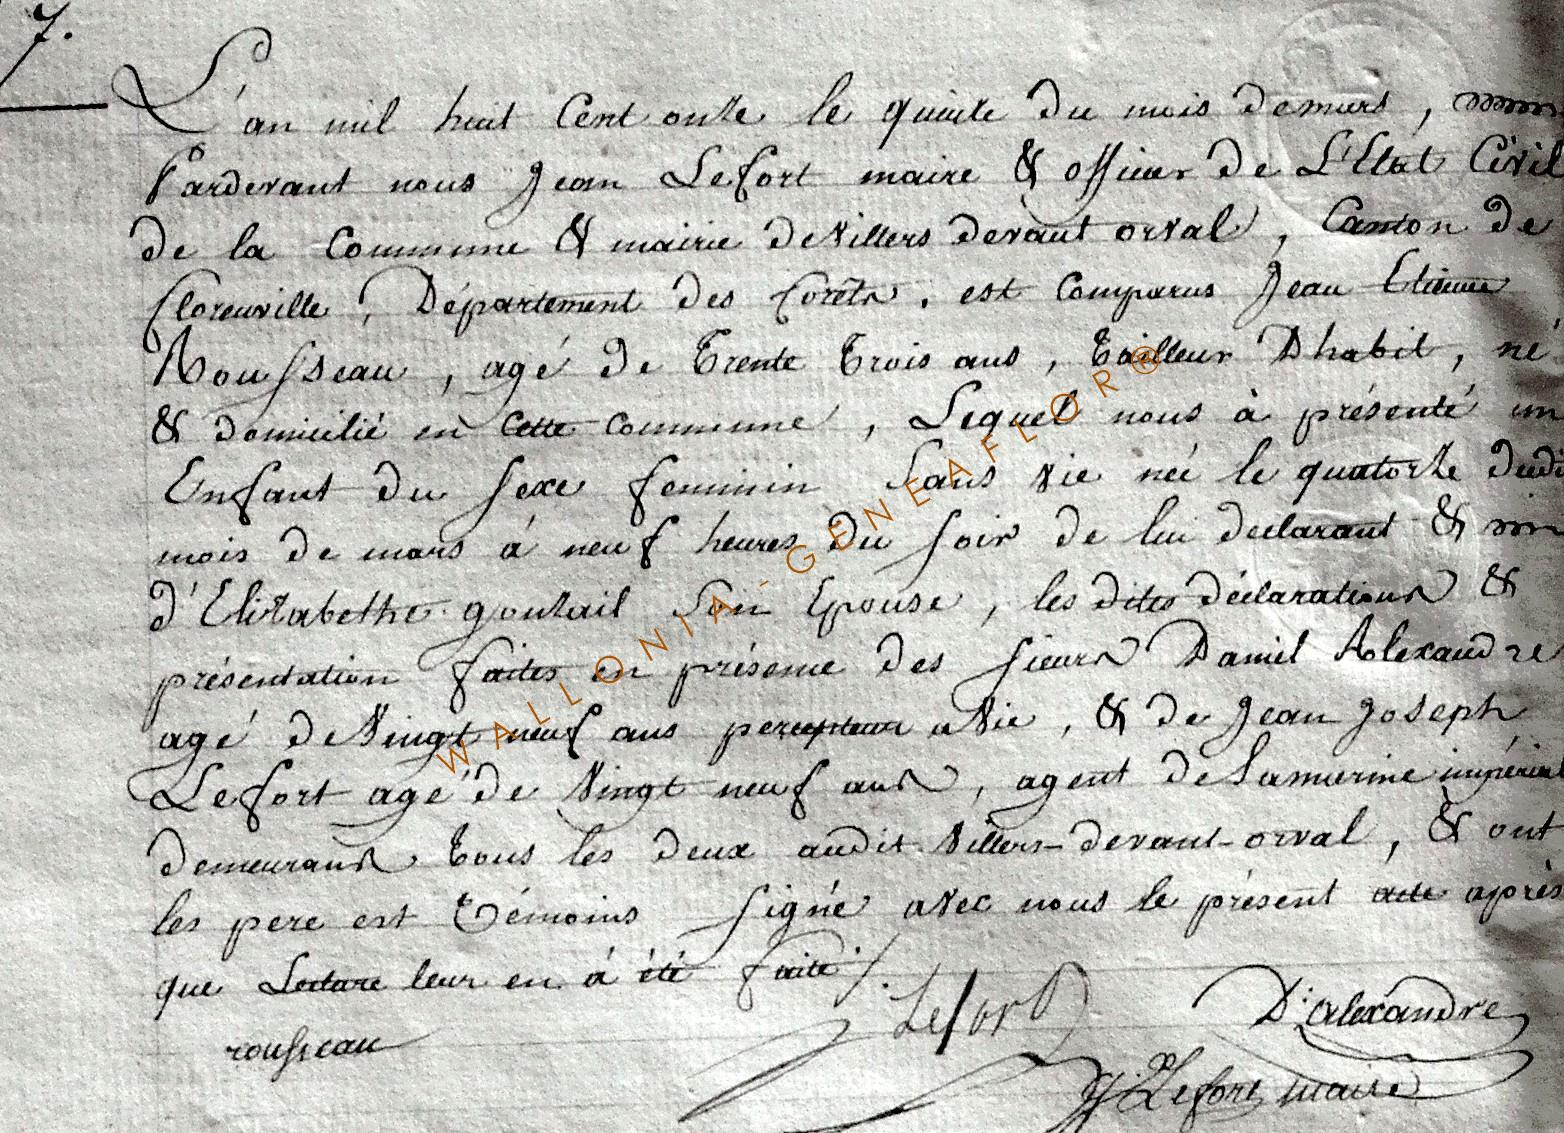 7.
L'an mil huit Cent onze le quinze du mois demars,
Pardevant nous Jean Lefort maire & officier de L'Etat Civil
de la Commune & mairie deVillers devant orval, Canton de
florenville, Département des forêts, est Comparus Jean Etienne
Rousseau, agé de Trente Trois ans, Tailleur Dhabit, né
& domicilié en Cette Commune, Lequel nous à présenté un
Enfant du sexe feminin sans vie neé le quatorze dudi
mois de mars à neuf heures du soir de lui declarant &
d'Elizabethe gouzail son Epouse, les dites déclarations &
présentation faites en présence des sieurs Daniel Alexandre
agé deVingt neuf ans percepteur a Vie, & de Jean Joseph
Lefort agé de Vingt neuf ans, agent de Lamarine impérial
demeurans Tous les deux audit Villers-devant-orval, & ont
les pere est Témoins signé avec nous le présent acte après
que Lecture leur en à été faite ./.
Lefort D. alexandre
rousseau
J. Lefort maire
WALLONIA-GENEAFLOR®